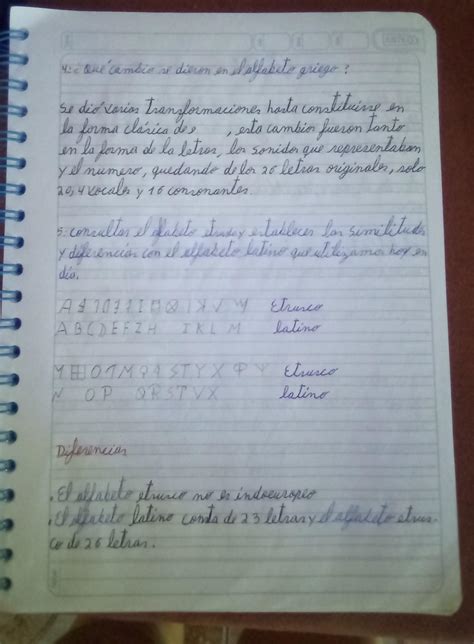 4: ¿Qué cambio se dieron en el alfabeto griego?
Se dió varias transformaciones hasta constituirse en
la forma clásica de , esta cambio fueron tanto
en la forma de la letras, los sonidos que representaban
y el numero, quedando de los 26 letras originales, solo
20, 4 vocales y 16 consonantes.
5: consultas el alfabeto etrusco y establecer las similitudes
y diferencias con el alfabeto latino que utilizamos hoy en
día.
Etrusco
A B C D E F Z H I K L M latino
Etrusco
N O P Q R S T V X latino
Diferencias
. El alfabeto etrusco no es indoeuropio
. El alfabeto latino consta de 23 letras y el alfabeto etrus-
co de 26 letras.